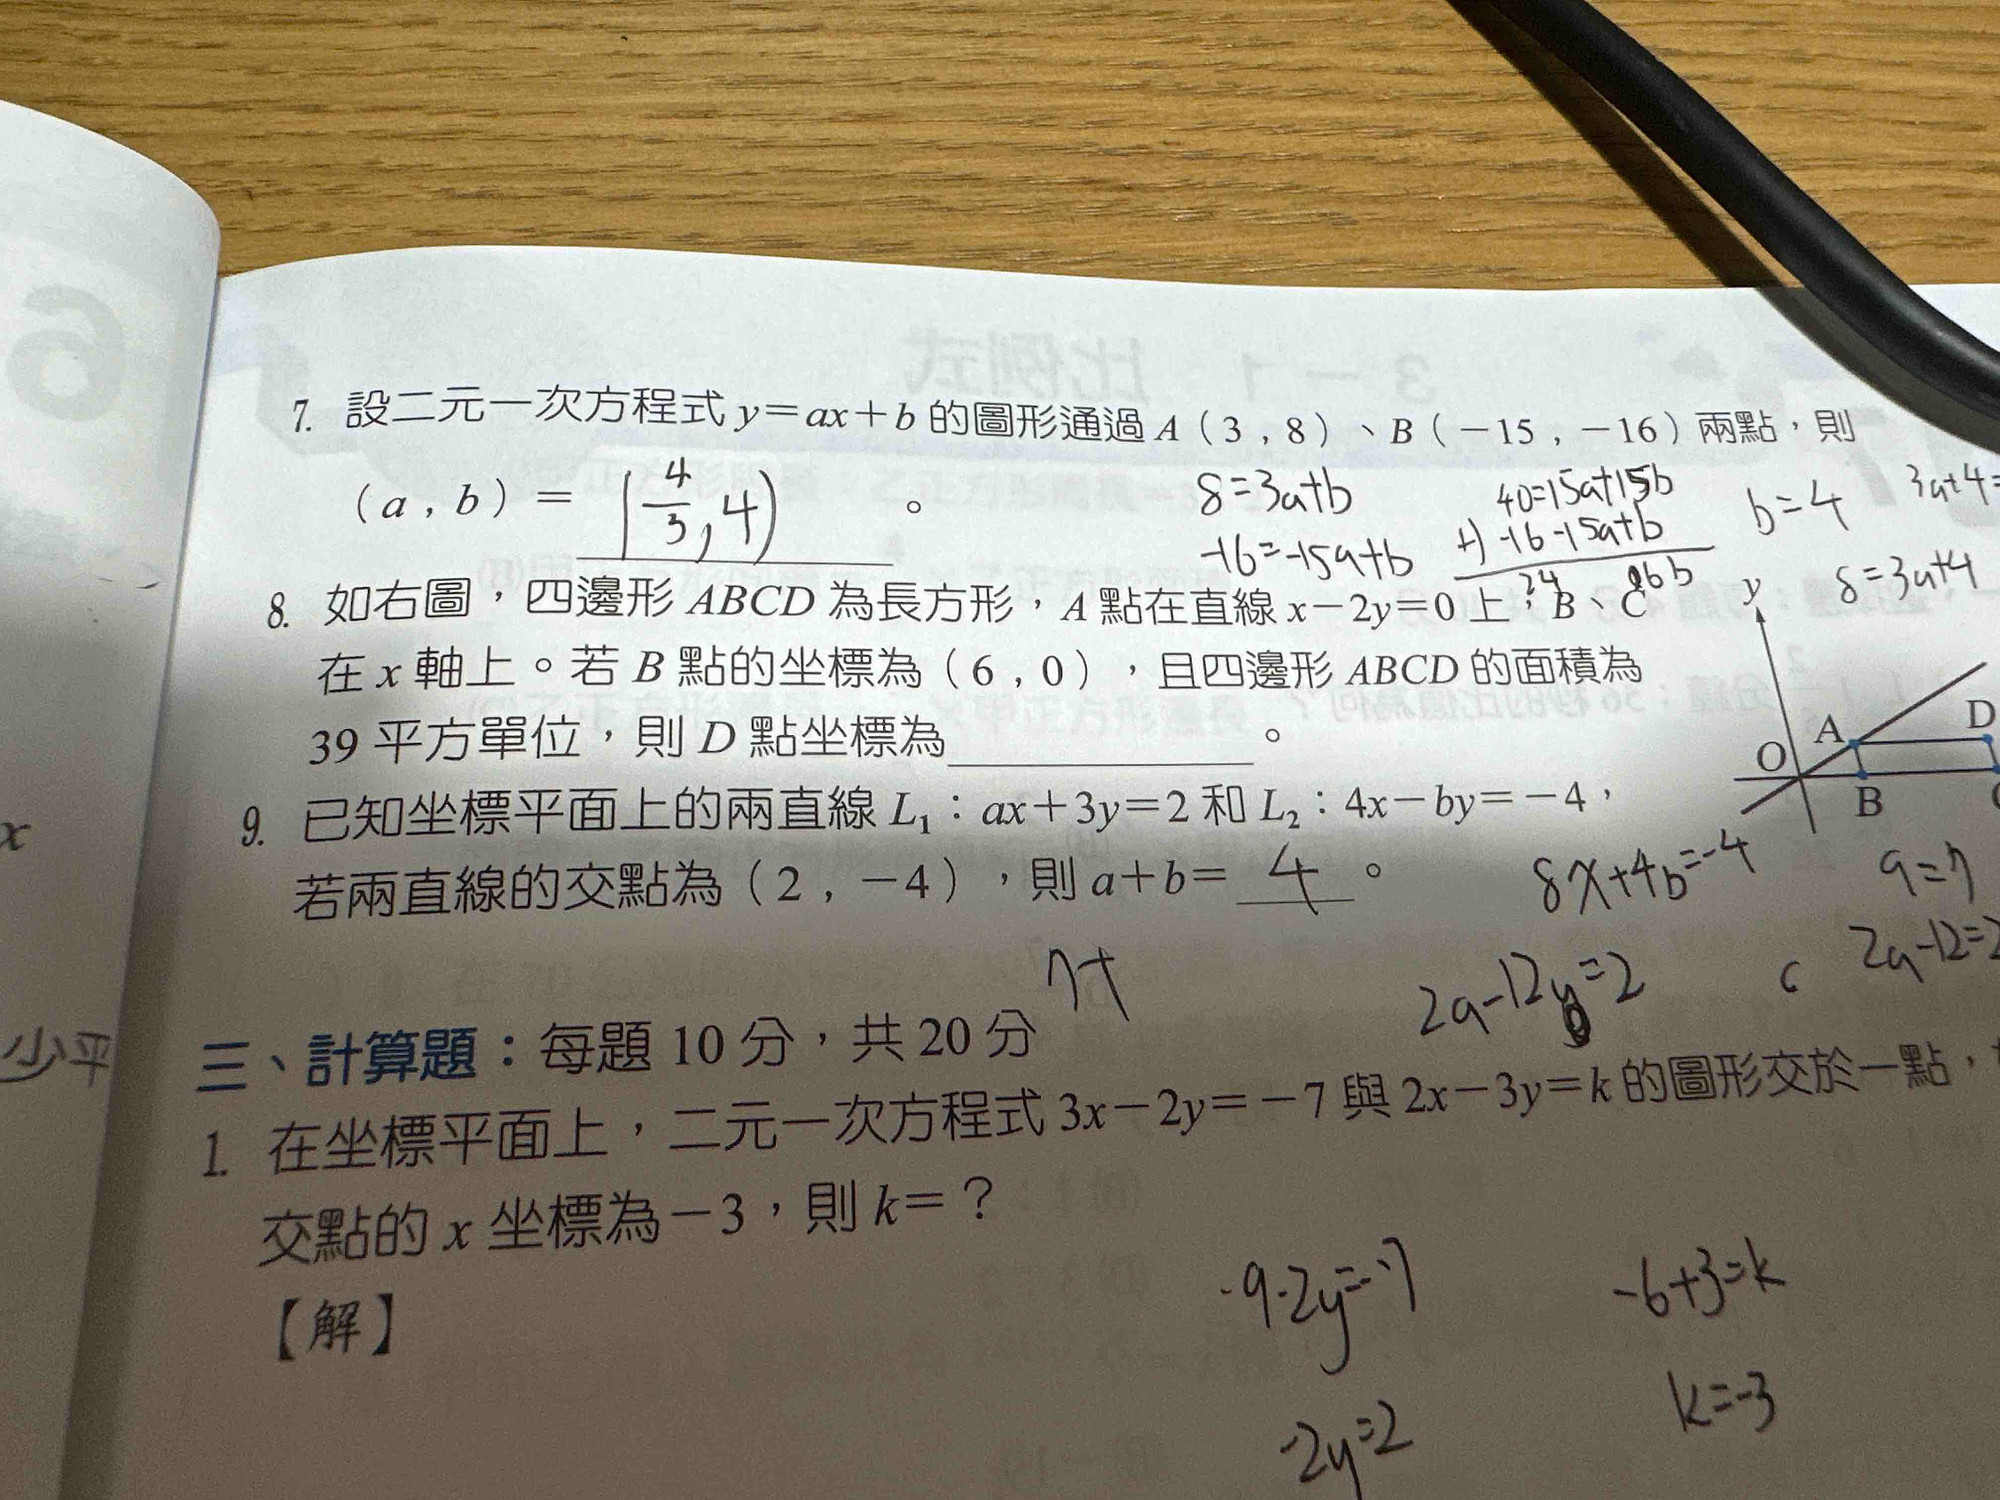 7. 設二元一次方程式 y＝ax＋b 的圖形通過 A（3 , 8）、B（－15 , －16）兩點，則
（a , b）＝ (4/3, 4) 。
8=3a+b
-16=-15a+b
40=15a+15b
+) -16-15a+b
24 16b
b=4
3a+4=
8=3a+4
8. 如右圖，四邊形 ABCD 為長方形，A 點在直線 x－2y＝0 上，B、C
在 x 軸上。若 B 點的坐標為（6 , 0），且四邊形 ABCD 的面積為
39 平方單位，則 D 點坐標為 。
y
O A D
B
9. 已知坐標平面上的兩直線 L₁：ax＋3y＝2 和 L₂：4x－by＝－4，
若兩直線的交點為（2 , －4），則 a＋b＝ 4 。
8x+4b=-4
a=7
2a-12y=2
2a-12=2
7+
三、計算題：每題 10 分，共 20 分
1. 在坐標平面上，二元一次方程式 3x－2y＝－7 與 2x－3y＝k 的圖形交於一點，
交點的 x 坐標為－3，則 k＝？
【解】
-9-2y=-7
-6+3=k
-2y=2
k=-3
x
少平